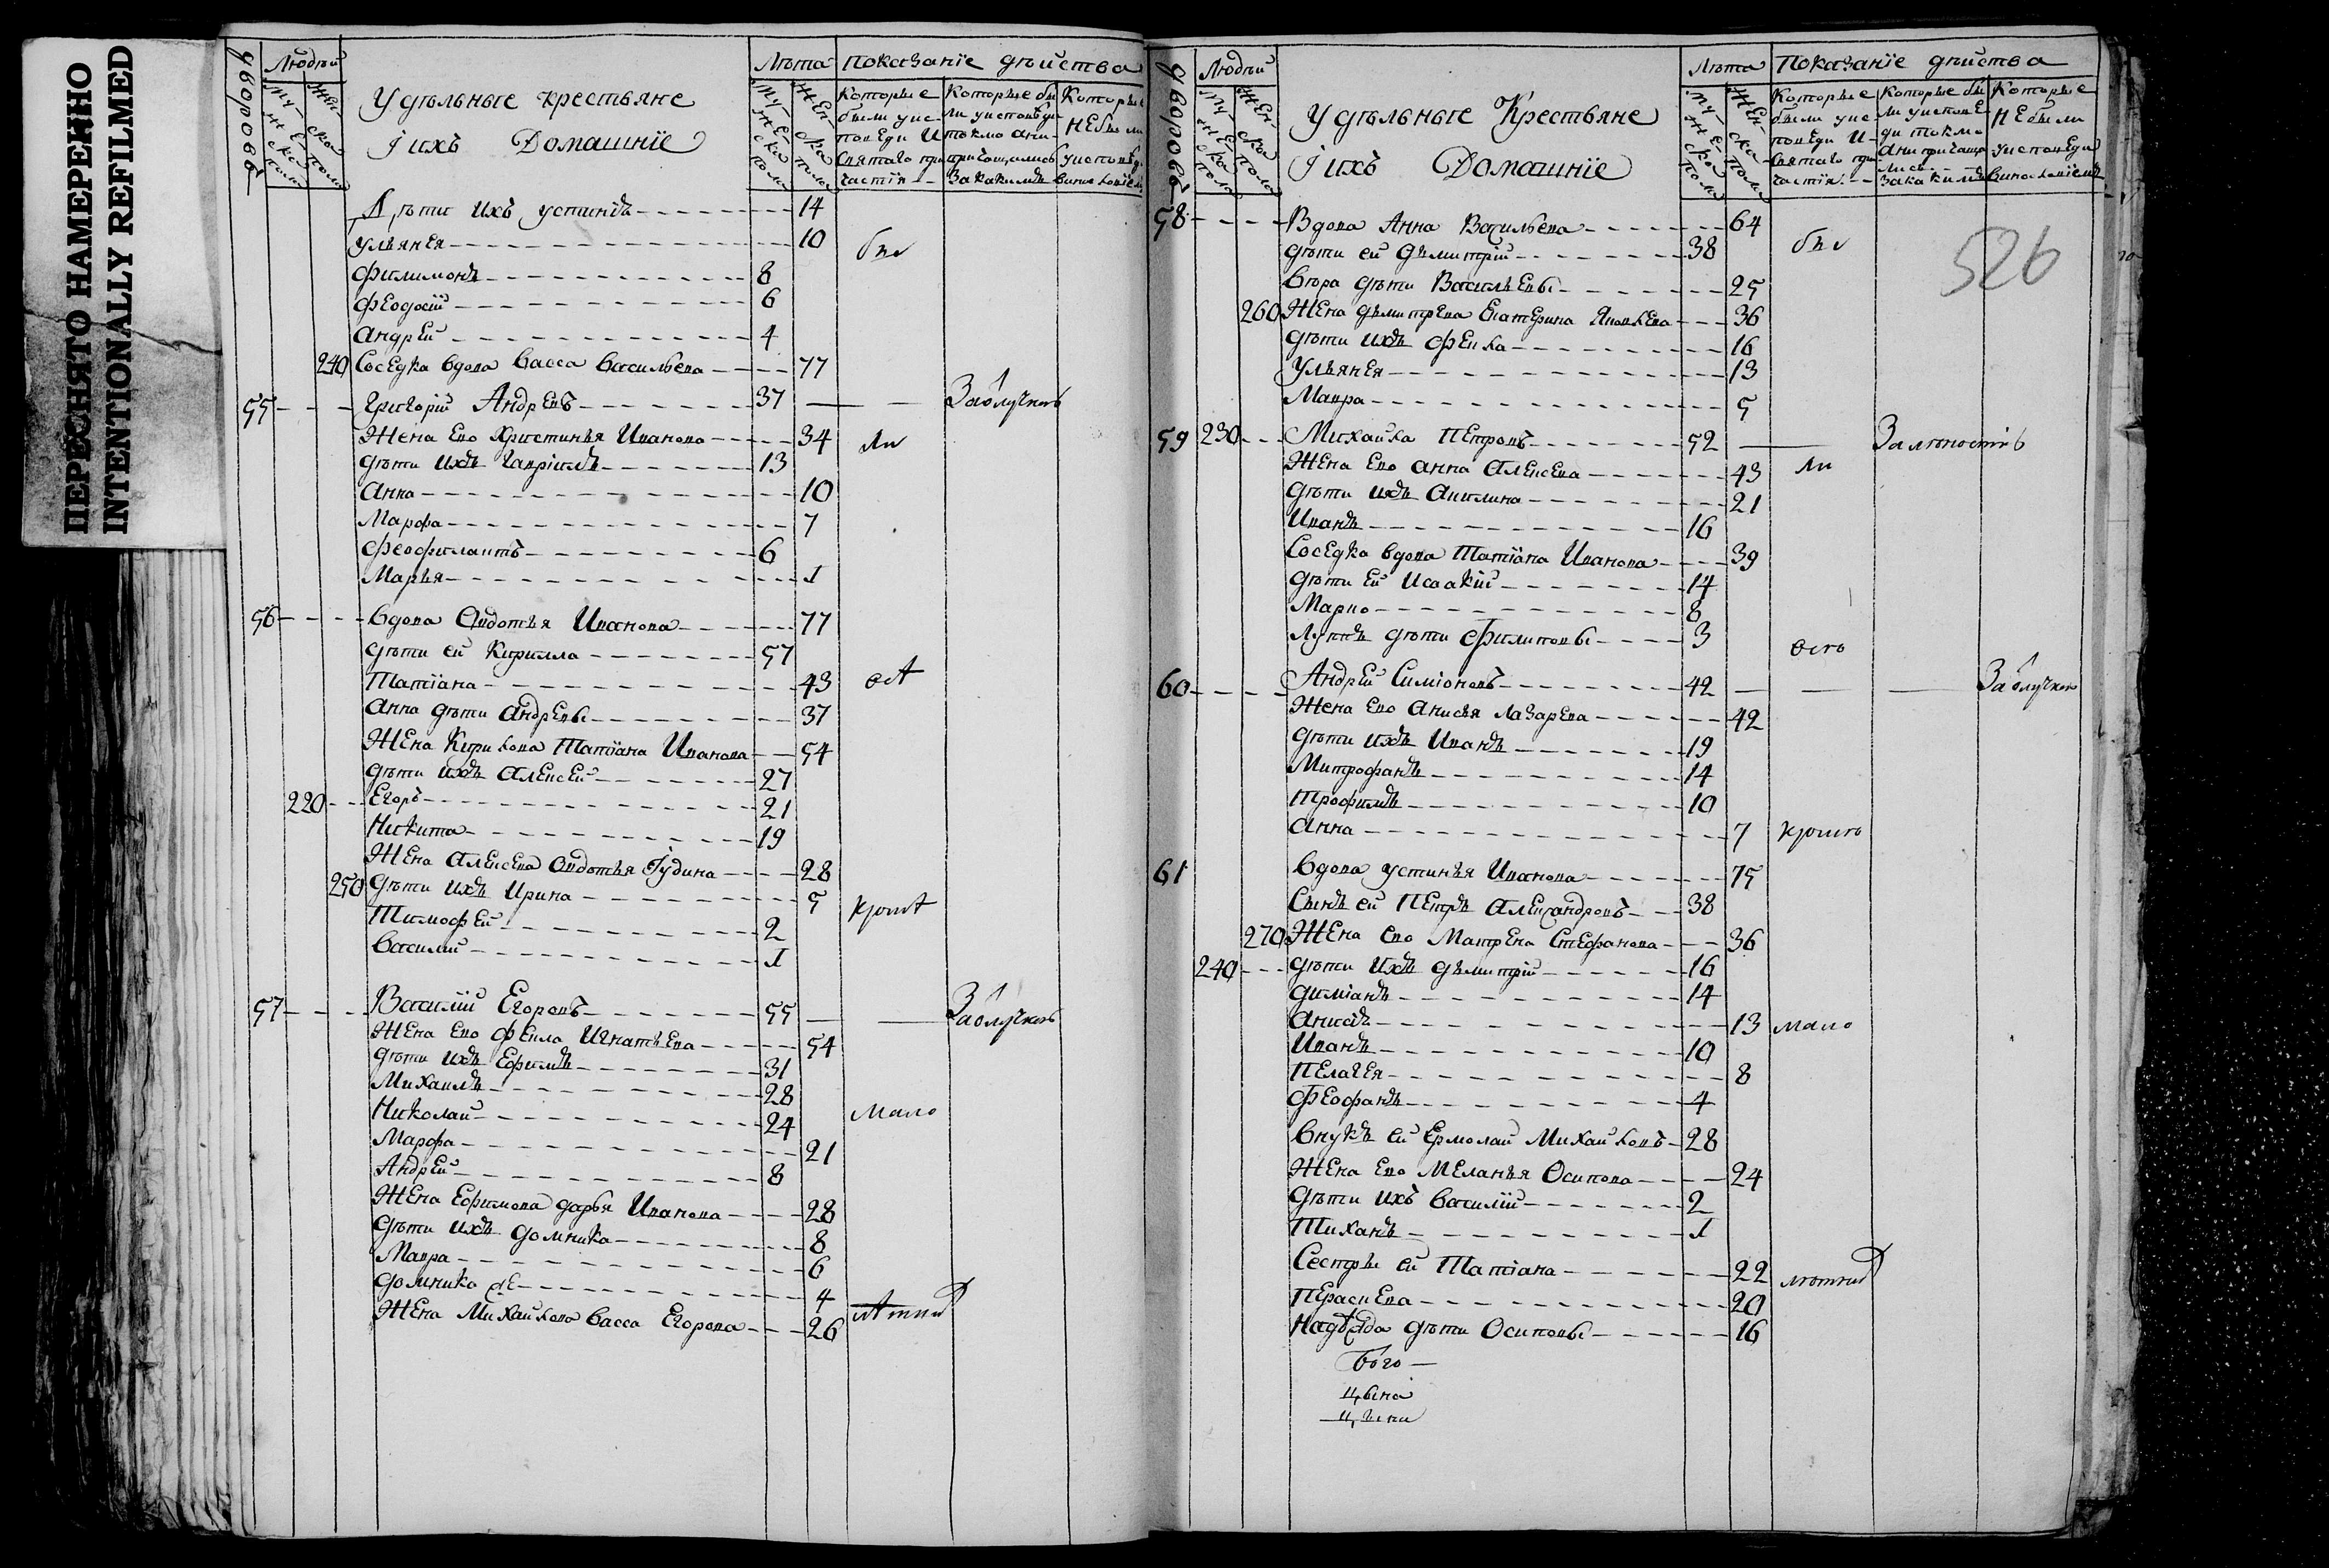 ПЕРЕСНЯТО НАМЕРЕННО
INTENTIONALLY REFILMED
дворовъ
Людѣй
Мужеска полу
Женска полу
Удѣльные крестьяне
Іихъ Домашніе
Лѣта
Мужеска полу
Женска полу
Показаніе дѣйства
Которые были у исповеди и святаго причастія
Которые были у исповѣди токмо а не причащались за какимъ
Которые не были у исповѣди
Дѣти ихъ устинія 14
ульянея 10 бы
филимонъ 8
феодосій 6
андрей 4
240 Соседка вдова васса васильева 77
55 Григорій Андревъ 37 За отлучкою
Жена его Христинья Иванова 34 ли
дѣти ихъ Гавріилъ 13
анна 10
Марфа 7
феофилактъ 6
Марья 1
56 вдова Овдотья Иванова 77
дѣти ей Кирилла 57
Татіана 43 ост
анна дѣти андревы 37
Жена Кирилова Татіана Иванова 54
дѣти ихъ алексей 27
220 Егоръ 21
Никита 19
Жена алексева овдотья Гудина 28
250 дѣти ихъ Ирина 5
Тимофей 2
василий 1
57 Василій Егоровъ 55 За отлучкою
Жена его фекла Игнатьева 54
дѣти ихъ Ефимъ 31
Михаилъ 28
Николай 24 мало
Марфа 21
Андрей 8
Жена Ефимова дарья Иванова 28
дѣти ихъ домника 8
Мавра 6
домника ѣе 4
Жена Михайлова васса Егорова 26
дворовъ
Людѣй
Мужеска полу
Женска полу
Удѣльные Крестьяне
Іихъ Домашніе
Лѣта
Мужеска полу
Женска полу
Показаніе дѣйства
Которые были у исповеди и святаго причастія
Которые были у исповеди токмо а не причащались за какимъ
Которые не были у исповеди
526
58 Вдова Анна Васильева 64
дѣти ей дѣмитрій 38 бы
вѣра дѣти Васильевы 25
260 Жена дѣмитрева Екатерина Яковлева 36
дѣти ихъ фекла 16
Ульянея 13
Мавра 5
59 230 Михайла Петровъ 52
Жена его анна алексева 43 ли
дѣти ихъ акилина 21
Иванъ 16
Соседка вдова Татіана Иванова 39
дѣти ей исаакій 14
Марко 8
дѣти филиповы 3
60 Андрей Симіоновъ 42 За отлучкою
Жена его анисья лазарева 42
дѣти ихъ Иванъ 19
Митрофанъ 14
Трофимъ 10
анна 7
61 вдова устинья Иванова 75
Сынъ ей Петръ александровъ 38
270 Жена его Матрена Стефанова 36
240 дѣти ихъ дѣмитрій 16
диміанъ 14
13 мало
Иванъ 10
Пелагея 8
феофанъ 4
внукъ ей Ермолай Михайловъ 28
Жена его Меланья Осипова 24
дѣти ихъ василій 2
Тиханъ 1
Сестры ей Татіана 22
Парасьева 20
Надежда дѣти Осиповы 16